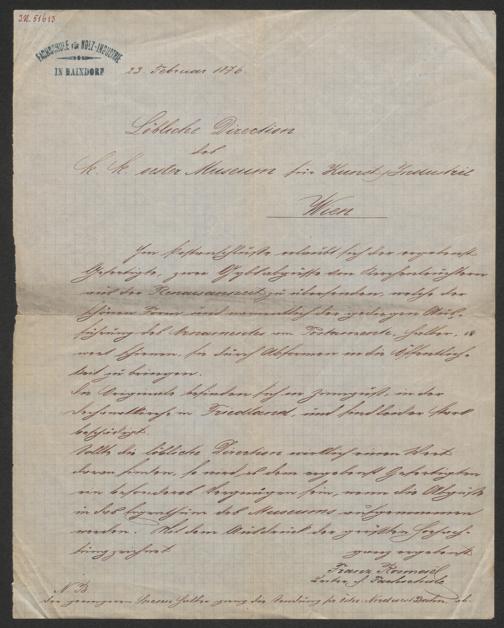 J.N. 51613
FACHSCHULE für HOLZ-INDUSTRIE
IN HAINDORF
23. Februar 1876.
Löbliche Direction
des
k. k. österr Museum für Kunst u Industrie
Wien
Im erlaubt sich der ergebenst
Gefertigte, zwei Gypsabgüsse von
aus der Renaissancezeit zu übersenden, welche der
schönen Form und namentlich der
führung des Ornamentes am halber, es
werth schienen, sie durch Abformen in die Öffentlich-
keit zu bringen.
Die Originale befinden sich in Zinnguß, in der
in Friedland, und sind leider stark
beschädigt.
Sollte die löbliche Direction wirklich einen Werth
daran finden, so wird es dem ergebenst Gefertigten
ein besonderes Vergnügen sein, wenn die Abgüsse
in das Eigenthum des Museums aufgenommen
werden. Mit dem Ausdruck der größten Hochach-
tung zeichnet
ganz ergebenst
Franz
Leiter d Fachschule
N B
der halber ging die Sendung per ab.